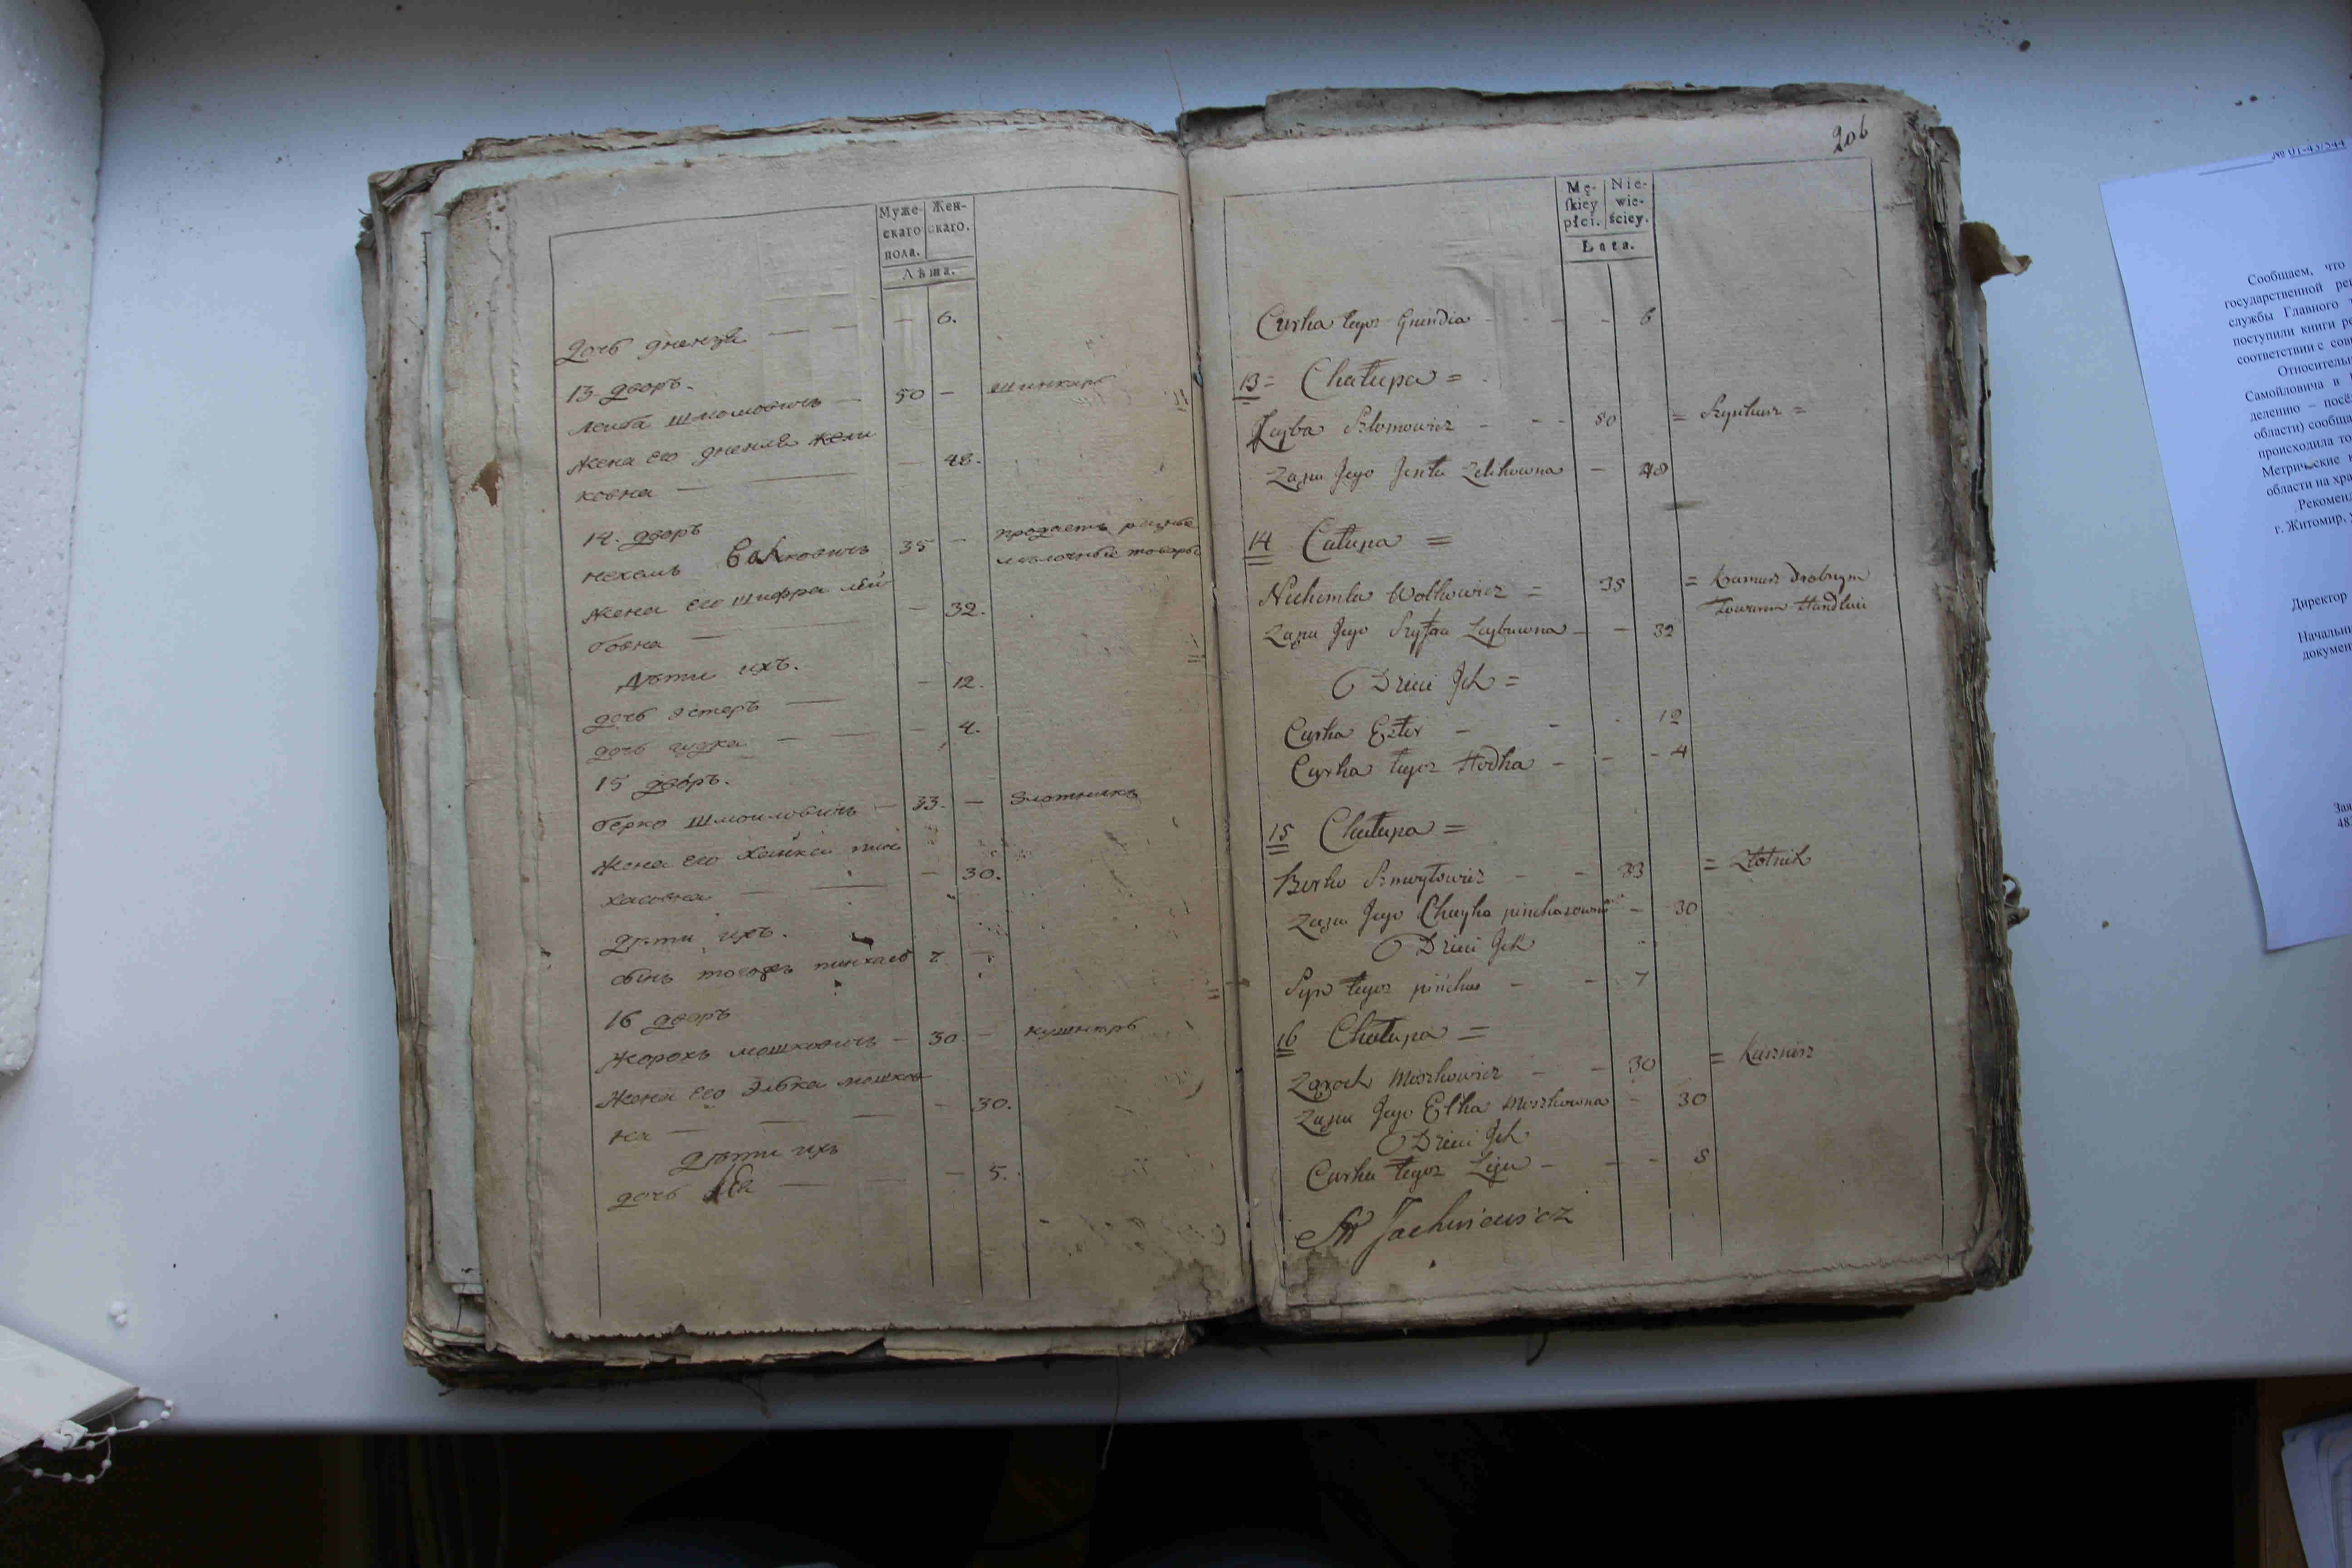 Муже-
скаго
пола.
Жен-
скаго.
Лѣта.
Дочь — — — 6.
13 дворъ.
Лейба Шмомовичъ — 50 — шинкаръ
Жена его Жели
ковна — — — 48.
14. дворъ
Нехамъ Валковичъ 35 — продаетъ разные
мелочные товары
Жена его Шифра Лей
бовна — — 32.
Дѣти ихъ.
дочь Эстеръ — — 12.
дочь — — — 4.
15 дворъ.
Берко Шмоиловичъ — 33. — Злотникъ
Жена его Хайка Пин
хасовна — — — 30.
Дѣти ихъ.
сынъ тогожъ Пинхасъ 7 —
16 дворъ
Жорохъ Мошковичъ — 30 — кушнѣръ
Жена его Элька Мошков
на — — — — 30.
Дѣти ихъ
дочь — — — 5.
206
Mę-
ſkiey
płci.
Nie-
wie-
ściey.
Lata.
Curka tegoz - - - - 6
13 = Chałupa =
Leyba Szlomowicz - - - 50 = Szynkarz =
Zana Jego Jenta Zelikowna - 48
14 Całupa =
Nechemka Wolkowicz = 35 = Kramarz Drobnym
Towarem Handluie
Zana Jego Szyfra Leybowna - - 32
Dzieci Jch =
Curka Ezter - - - 12
Curka tegoz Hodka - - - 4
15 Chałupa =
Berko Szmoyłowicz - - 33 = Złotnik
Zana Jego Chayka pinchasowna - 30
Dzieci Jch
Syn tegoz pinchas - - 7
16 Chałupa =
Zoroch Moszkowicz - - 30 = Kusznierz
Zana Jego Elka Moszkowna - 30
Dzieci Jch
Curka tegoz Leja - - - 5
Jachniewicz
№ 01-43/544
Сообщаем, что
государственной
службы Главного
поступили книги
соответствии с
Относительно
Самойловича в
делению – посё
области) сообща
происходила
Метрические
области на хра
Рекомен
г. Житомир,
Директор
Начальни
докумен